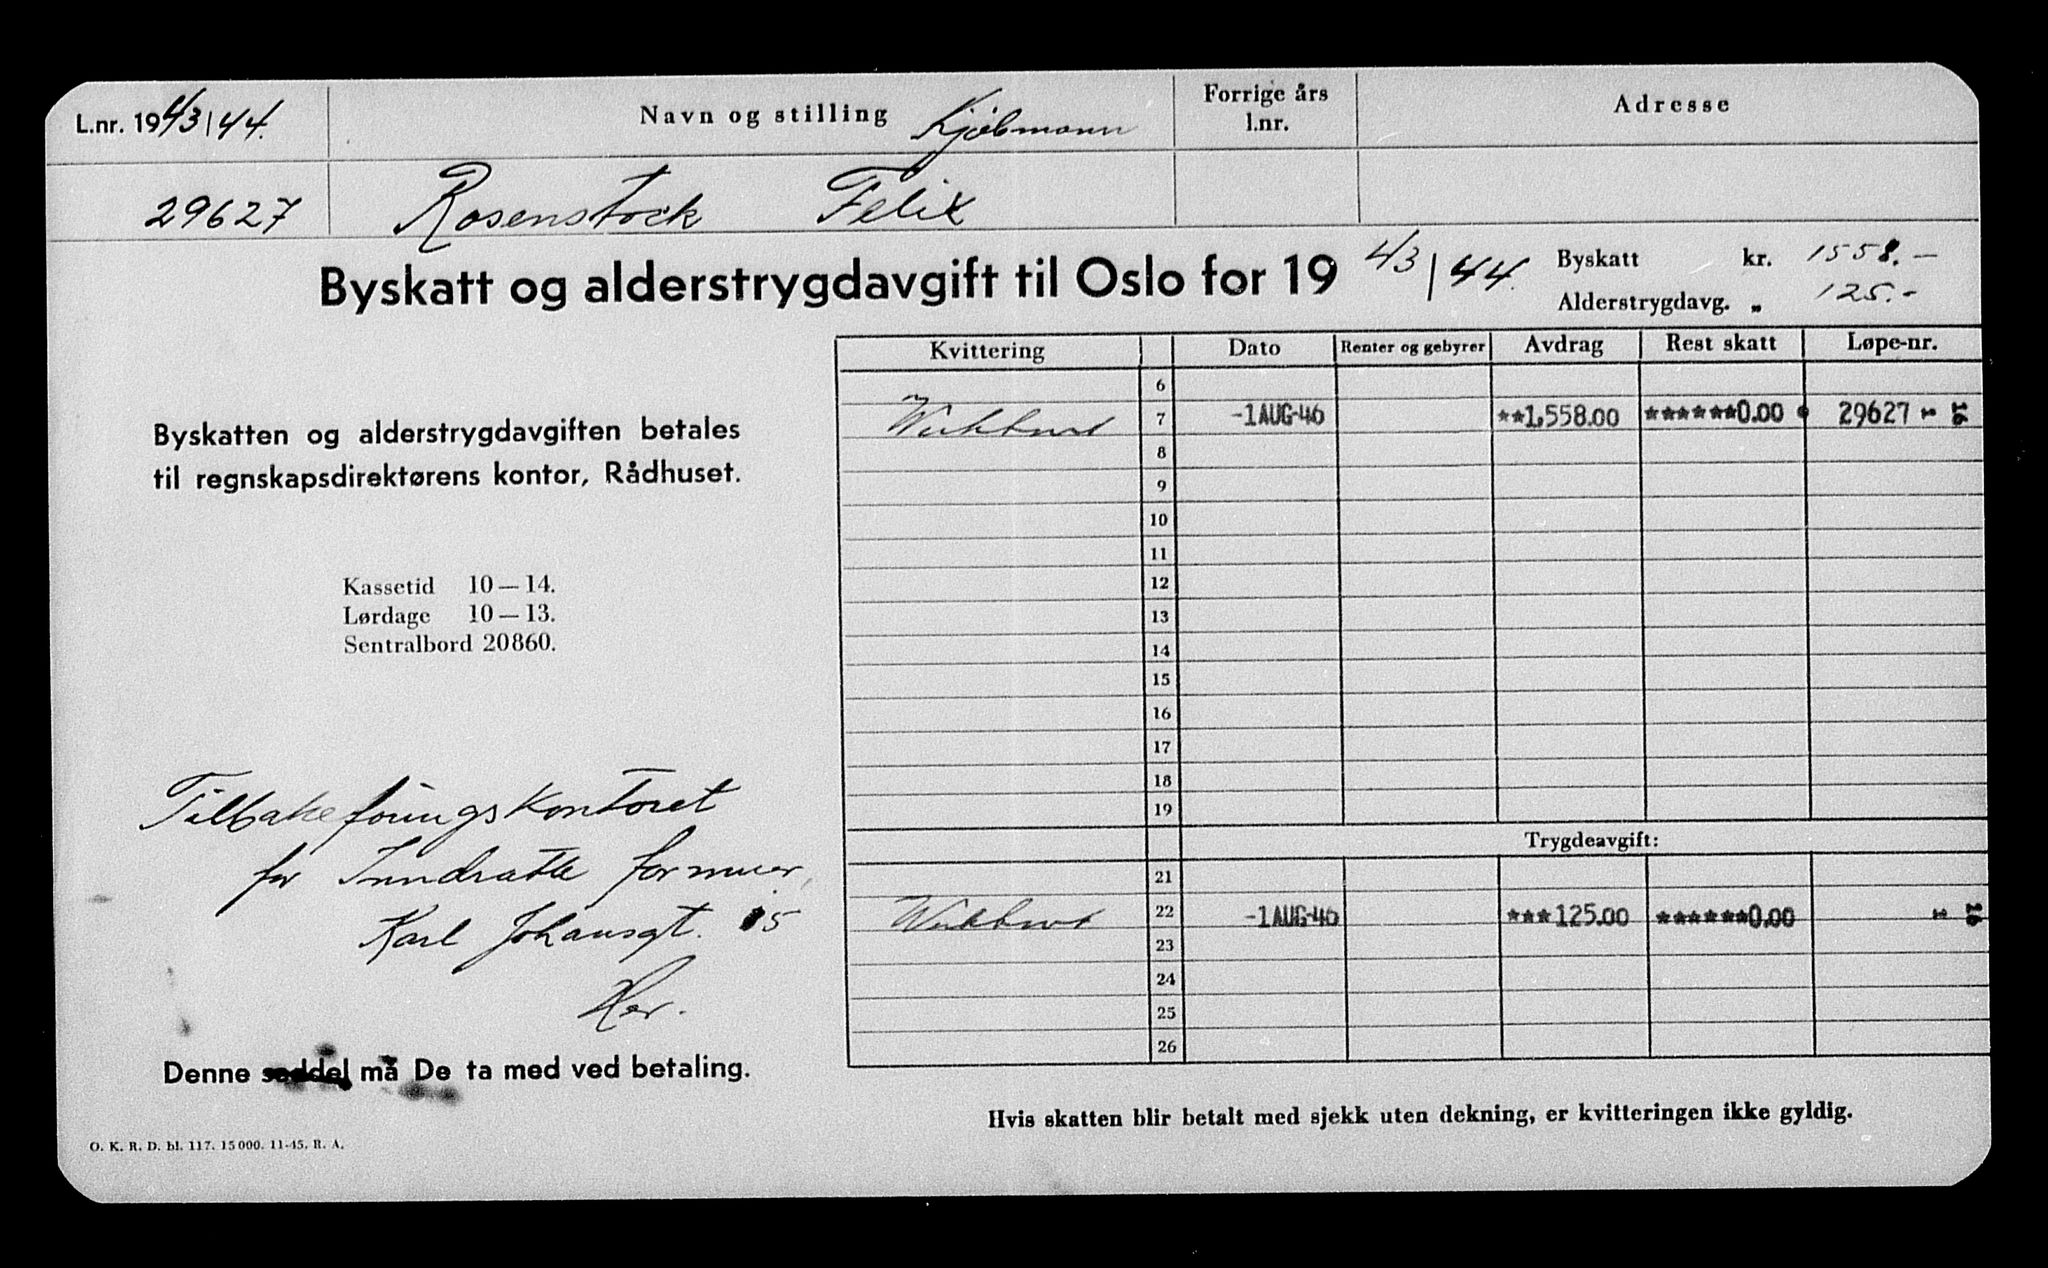 L.nr. 1943/44. Navn og stilling Kjøbmann Forrige års l.nr. Adresse
29627 Rosenstock Felix
Byskatt og alderstrygdavgift til Oslo for 1943/44.
Byskatt kr. 1558.-
Alderstrygdavg. „ 125.-
Byskatten og alderstrygdavgiften betales
til regnskapsdirektørens kontor, Rådhuset.
Kassetid 10—14.
Lørdage 10—13.
Sentralbord 20860.
Tilbakeføringskontoret
for Inndratte formuer,
Karl Johansgt. 15
Her.
Denne seddel må De ta med ved betaling.
O. K. R. D. bl. 117. 15000. 11-45. R. A.
Kvittering Dato Renter og gebyrer Avdrag Rest skatt Løpe-nr.
6
7 -1AUG-46 **1,558.00 ******0.00 29627
8
9
10
11
12
13
14
15
16
17
18
19
Trygdeavgift:
21
22 -1AUG-46 ***125.00 ******0.00
23
24
25
26
Hvis skatten blir betalt med sjekk uten dekning, er kvitteringen ikke gyldig.